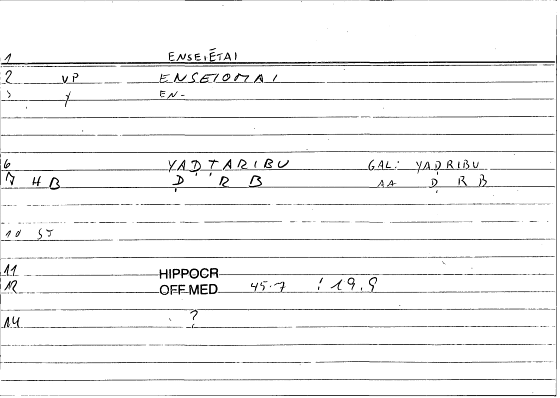 1 ENSEIĒTAI
2 VP ENSEIOMAI
3 Y EN-
6 YAḌṬARIBU GAL: YAḌRIBU
7 HB Ḍ R B AA Ḍ R B
10 ST
11 HIPPOCR
12 OFF MED 45.7 : 19.9
14 ?